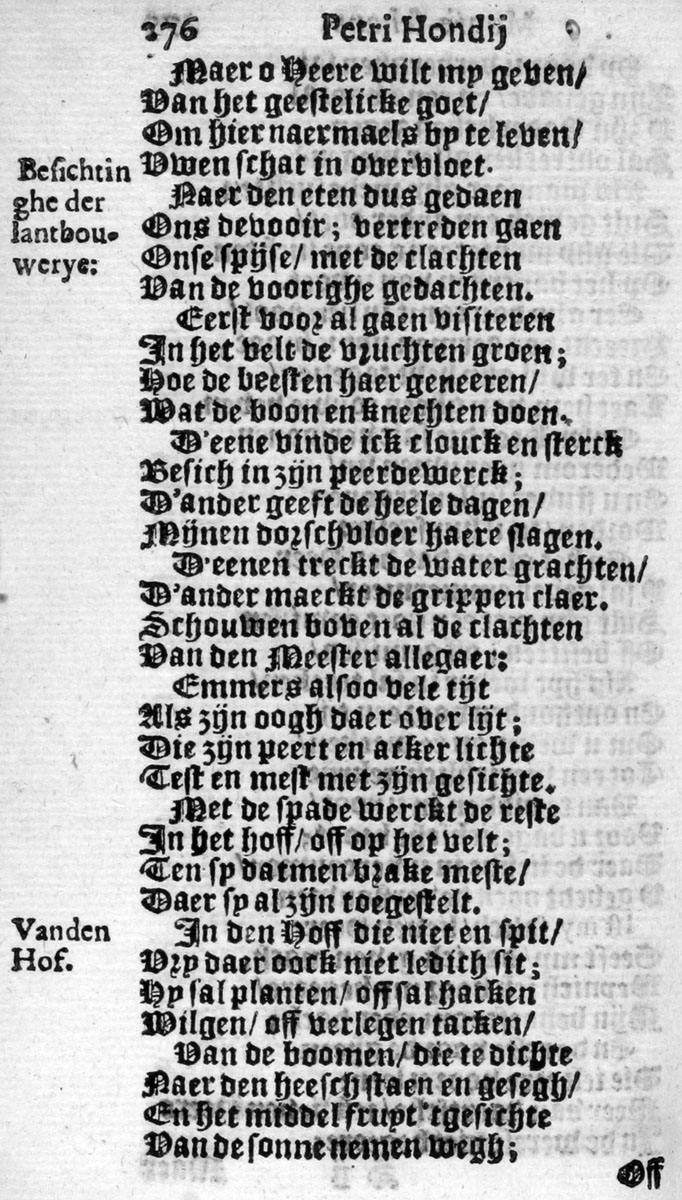 276 Petri Hondij
Maer o Heere wilt my geven/
Van het geestelicke goet/
Om hier naermaels by te leven/
Vwen schat in overvloet.
Besichtin
ghe der
lantbou-
werye:
Naer den eten dus gedaen
Ons devooir; vertreden gaen
Onse spijse/ met de clachten
Van de voorighe gedachten.
Eerst voor al gaen visiteren
In het velt de vruchten groen;
Hoe de beesten haer geneeren/
Wat de boon en knechten doen.
D'eene vinde ick clouck en sterck
Besich in zijn peerdewerck;
D'ander geeft de heele dagen/
Mijnen dorschvloer haere slagen.
D'eenen treckt de water grachten/
D'ander maeckt de grippen claer.
Schouwen boven al de clachten
Van den Meester allegaer:
Emmers alsoo vele tijt
Als zijn oogh daer over lijt;
Die zijn peert en acker lichte
Test en mest met zijn gesichte.
Met de spade werckt de reste
In het hoff/ off op het velt;
Ten sy datmen brake meste/
Daer sy al zijn toegestelt.
Vanden
Hof.
In den Hoff die niet en spit/
Vry daer oock niet ledich sit;
Hy sal planten/ off sal hacken
Wilgen/ off verlegen tacken/
Van de boomen/ die te dichte
Naer den heesch staen en gesegh/
En het middel fruyt 'tgesichte
Van de sonne nemen wegh;
Off